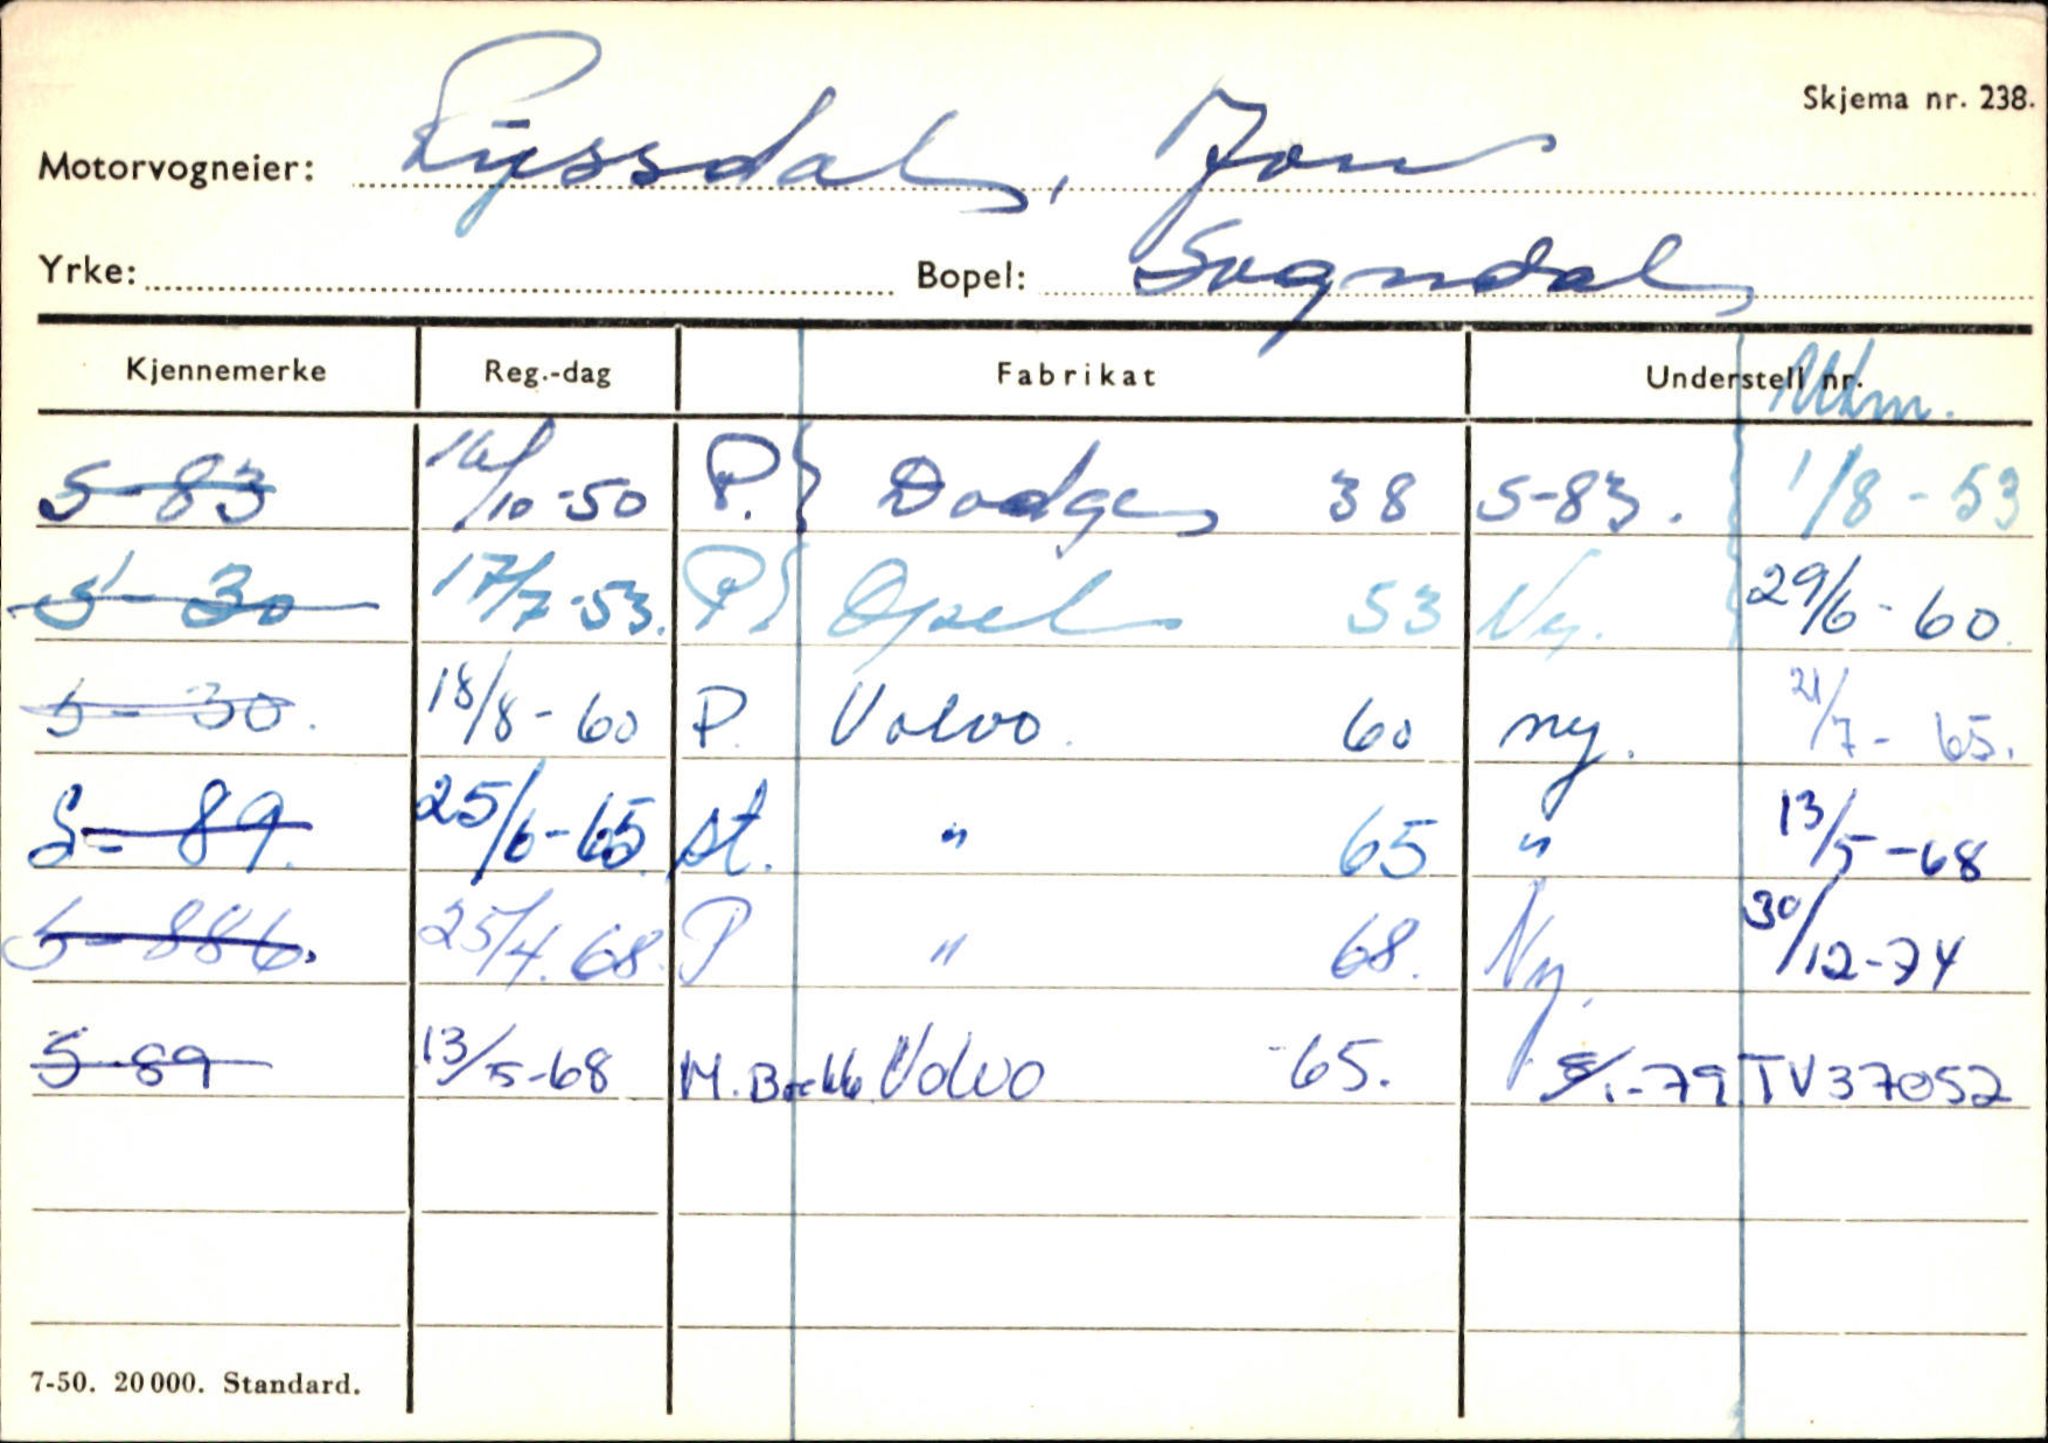 Skjema nr. 238.
Motorvogneier: Ryssdal, Jon
Yrke: Bopel: Sogndal
Kjennemerke Reg.-dag Fabrikat Understell nr. Utm.
S-83 16/10-50 P. Dodge 38 S-83. 1/8-53
S-30 17/7-53. P Opel 53 Ny. 29/6-60
S-30. 18/8-60 P. Volvo 60 ny. 21/7-65.
S-89. 25/6-65. st. " 65 " 13/5-68
S-886. 25/4.68. P " 68. Ny. 30/12-74
S-89 13/5-68 Volvo -65. /1-79 TV37052
7-50. 20 000. Standard.